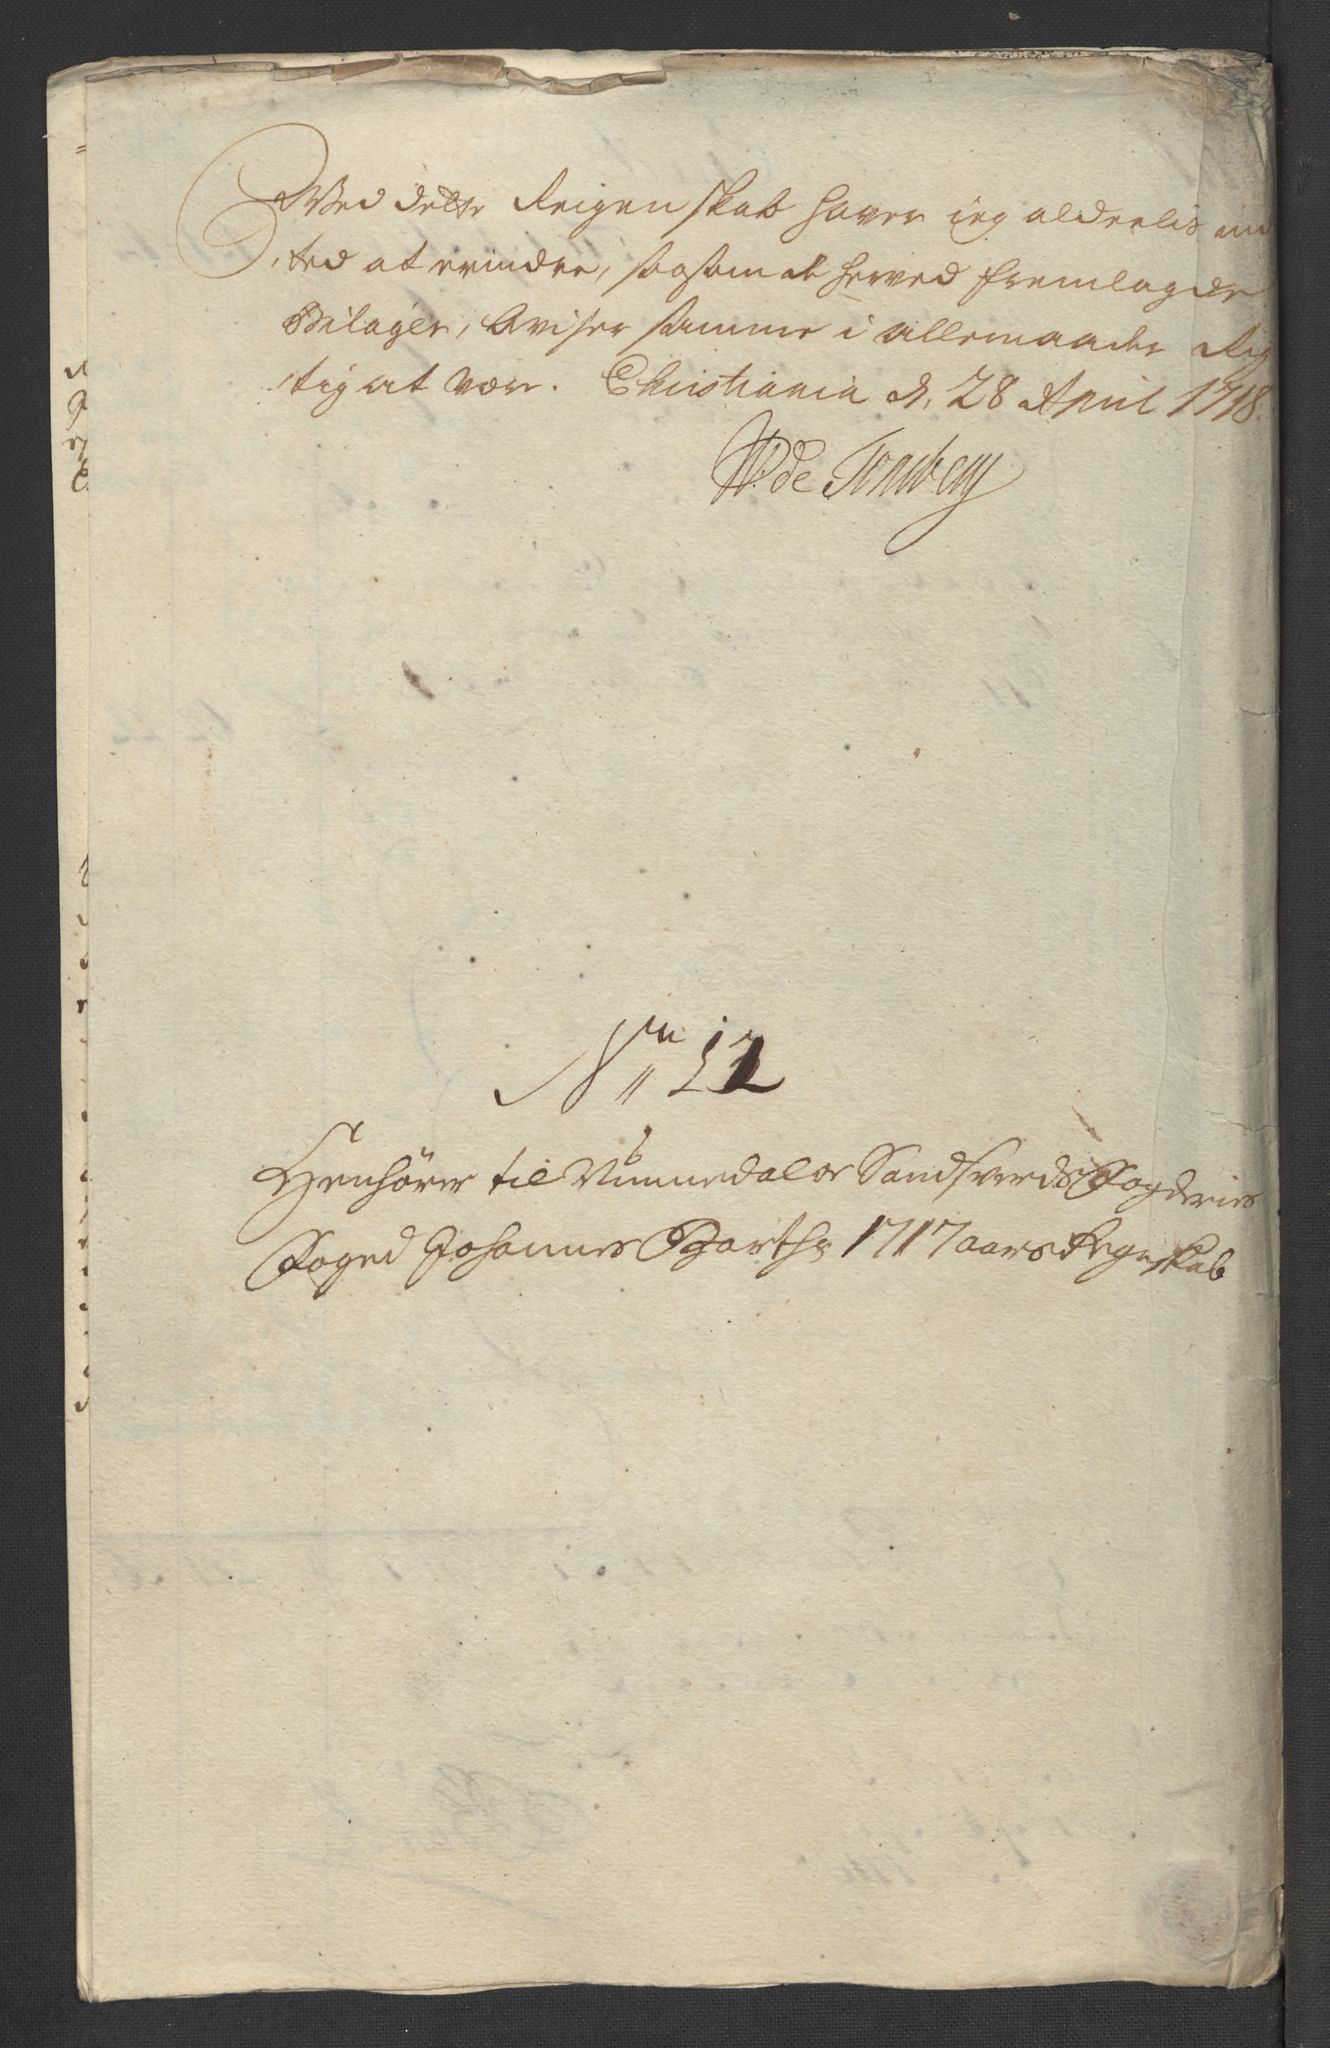 Ved dette Reigenskab haver jeg alderlis in
ted at erindre, saasom de herved fremlagde
Bilager, Aviser samme i allemaader Rig
tig at være. Christiania d. 28 April 1718.
de Tonsberg
No 12
Henhörer til Nummedal oc Sandsverds Fogderies
Foged Johannes Barths 1717 aars Regnskab